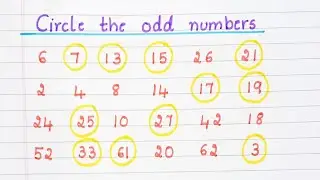 Circle the odd numbers
6 7 13 15 26 21
2 4 8 14 17 19
24 25 10 27 42 18
52 33 61 20 62 3